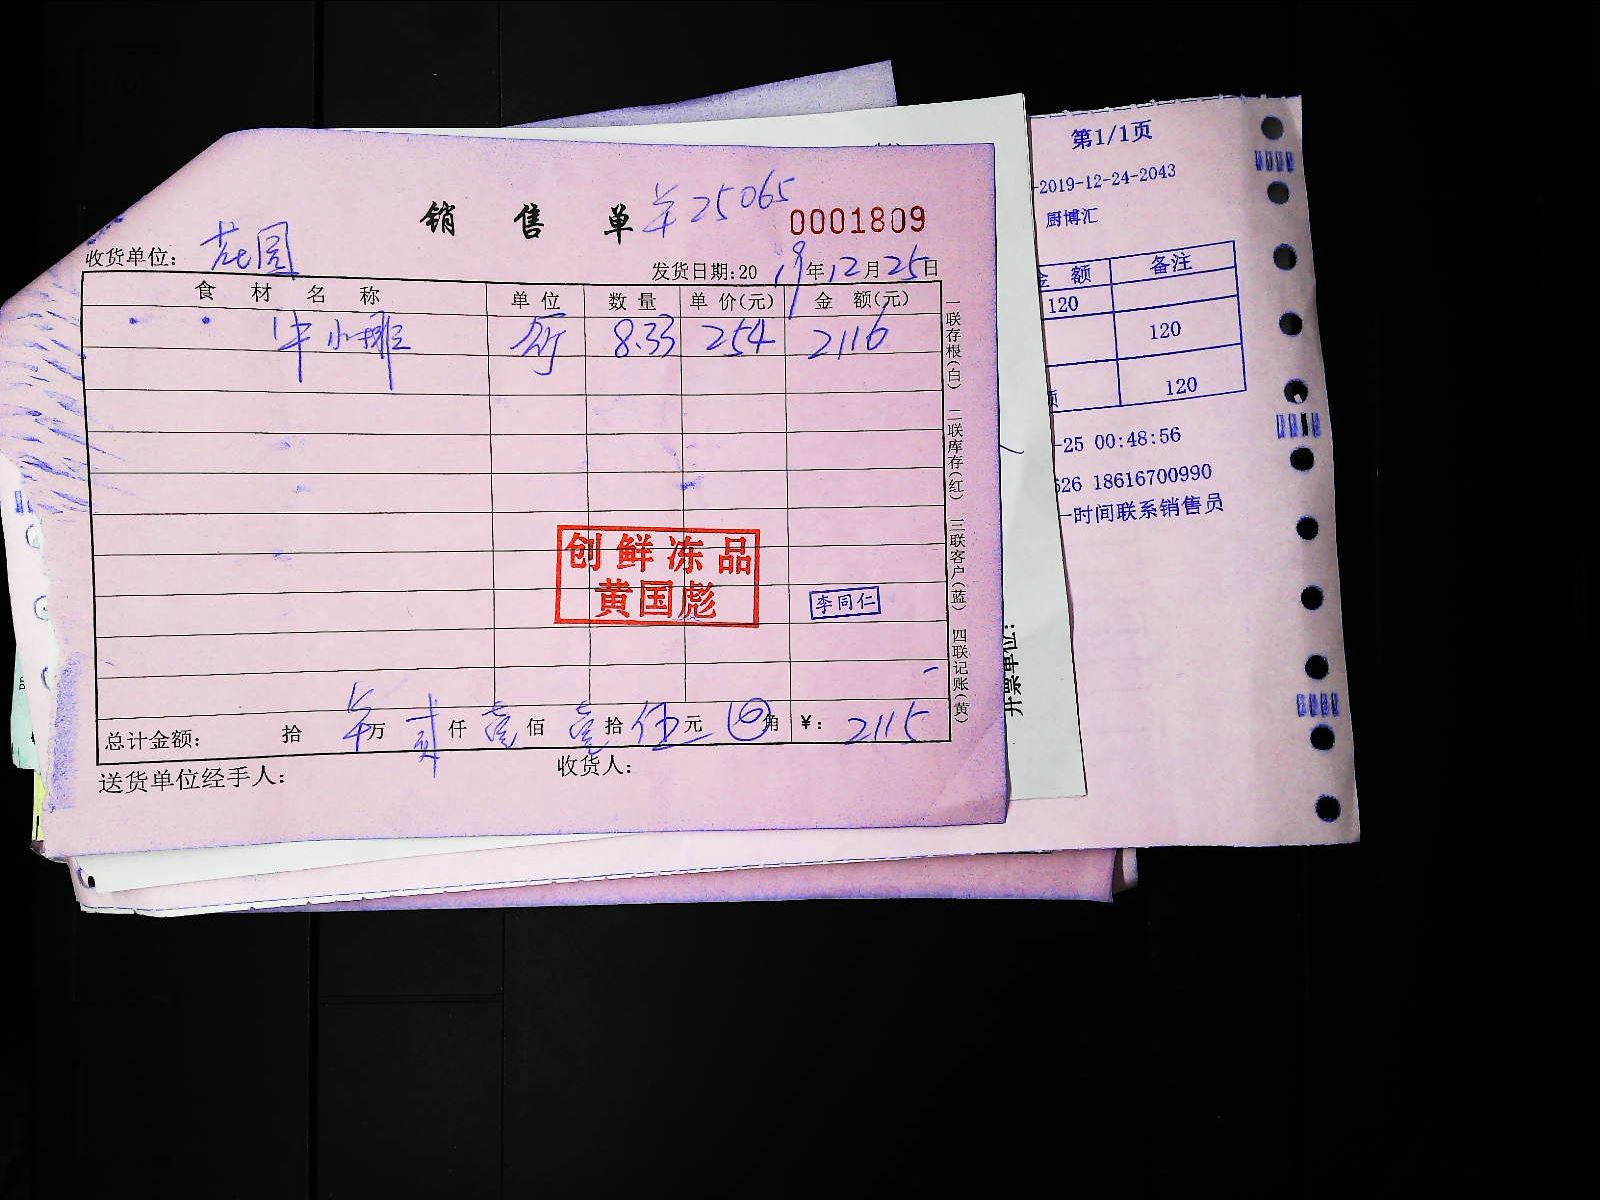 销 售 单 ￥25065
0001809
收货单位: 花园
发货日期:20 19年12月25日
食 材 名 称 单 位 数 量 单 价(元) 金 额(元)
牛小排 8.33 254 2116
创鲜冻品
黄国彪
李同仁
总计金额: 拾 万 贰仟 壹佰 壹拾 伍元 角 ¥: 2115
送货单位经手人: 收货人:
一联存根(白) 二联库存(红) 三联客户(蓝) 四联记账(黄)
第1/1页
-2019-12-24-2043
厨博汇
金 额 备注
120
120
额 120
-25 00:48:56
626 18616700990
一时间联系销售员
开票单位: